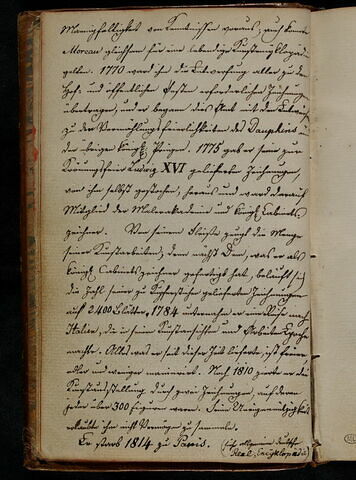 Mannigfaltigkeit von Kenntnissen voraus; auch konnte
Moreau gleichsam für eine lebendige Kunstencyklopädie
gelten. 1770 ward ihm die Entwerfung aller zu den
Hof- und öffentlichen Festen erforderlichen Zeichnungen
übertragen, und er begann dies Amt mit den Entwürfen
zu den Vermählungsfeierlichkeiten des Dauphins und
der übrigen königl. Prinzen. 1775 gab er seine zur
Krönungsfeier Ludwig XVI gelieferten Zeichnungen,
von ihm selbst gestochen, heraus und ward darauf
Mitglied der Malerakademie und königl. Cabinets-
zeichner. Von seinem Fleiße zeugt die Menge
seiner Kunstarbeiten; denn nächst Dem, was er als
königl. Cabinetszeichner gefertigt hat, beläuft sich
die Zahl seiner zu Kupferstichen gelieferten Zeichnungen
auf 2400 Blätter. 1784 unternahm er eine Reise nach
Italien, die in seinen Kunstansichten und Arbeiten Epoche
machte. Alles was er seit dieser Zeit lieferte, ist freier
edler und weniger manierirt. Noch 1810 zierte er die
Kunstausstellung durch zwei Zeichnungen, auf deren
jeder über 300 Figuren waren. Seine Uneigennützigkeit
erlaubte ihm nicht Vermögen zu sammeln.
Er starb 1814 zu Paris. (Siehe allgemeine deutsche
Real-Encyklopädie)